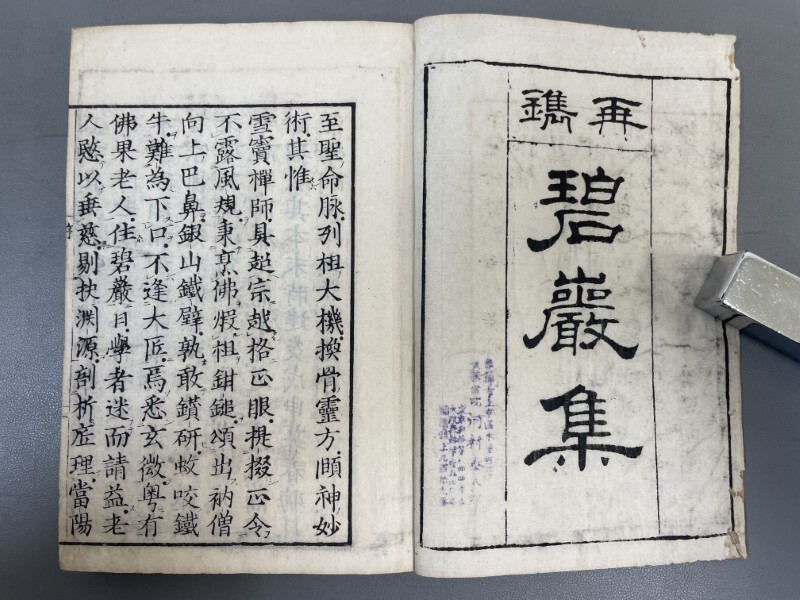 再鐫
碧巖集
至聖命脉列祖大機換骨靈方頤神妙
術其惟
雪竇禪師具超宗越格正眼提掇正令
不露風規秉烹佛煆祖鉗鎚頌出衲僧
向上巴鼻銀山鐵壁孰敢鑚研蚊咬鐵
牛難為下口不逢大匠焉悉玄微粤有
佛果老人住碧巖日學者迷而請益老
人愍以垂慈剔抉淵源剖析底理當陽
序